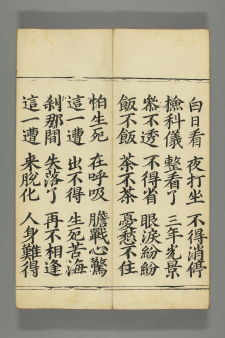 白日看 夜打坐 不得消停
檢科儀 整看了 三年光景
參不透 不得省 眼淚紛紛
飯不飯 茶不茶 憂愁不住
怕生死 在呼吸 膽戰心驚
這一遭 出不得 生死苦海
剎那間 失落了 再不相逢
這一遭 來脫化 人身難得